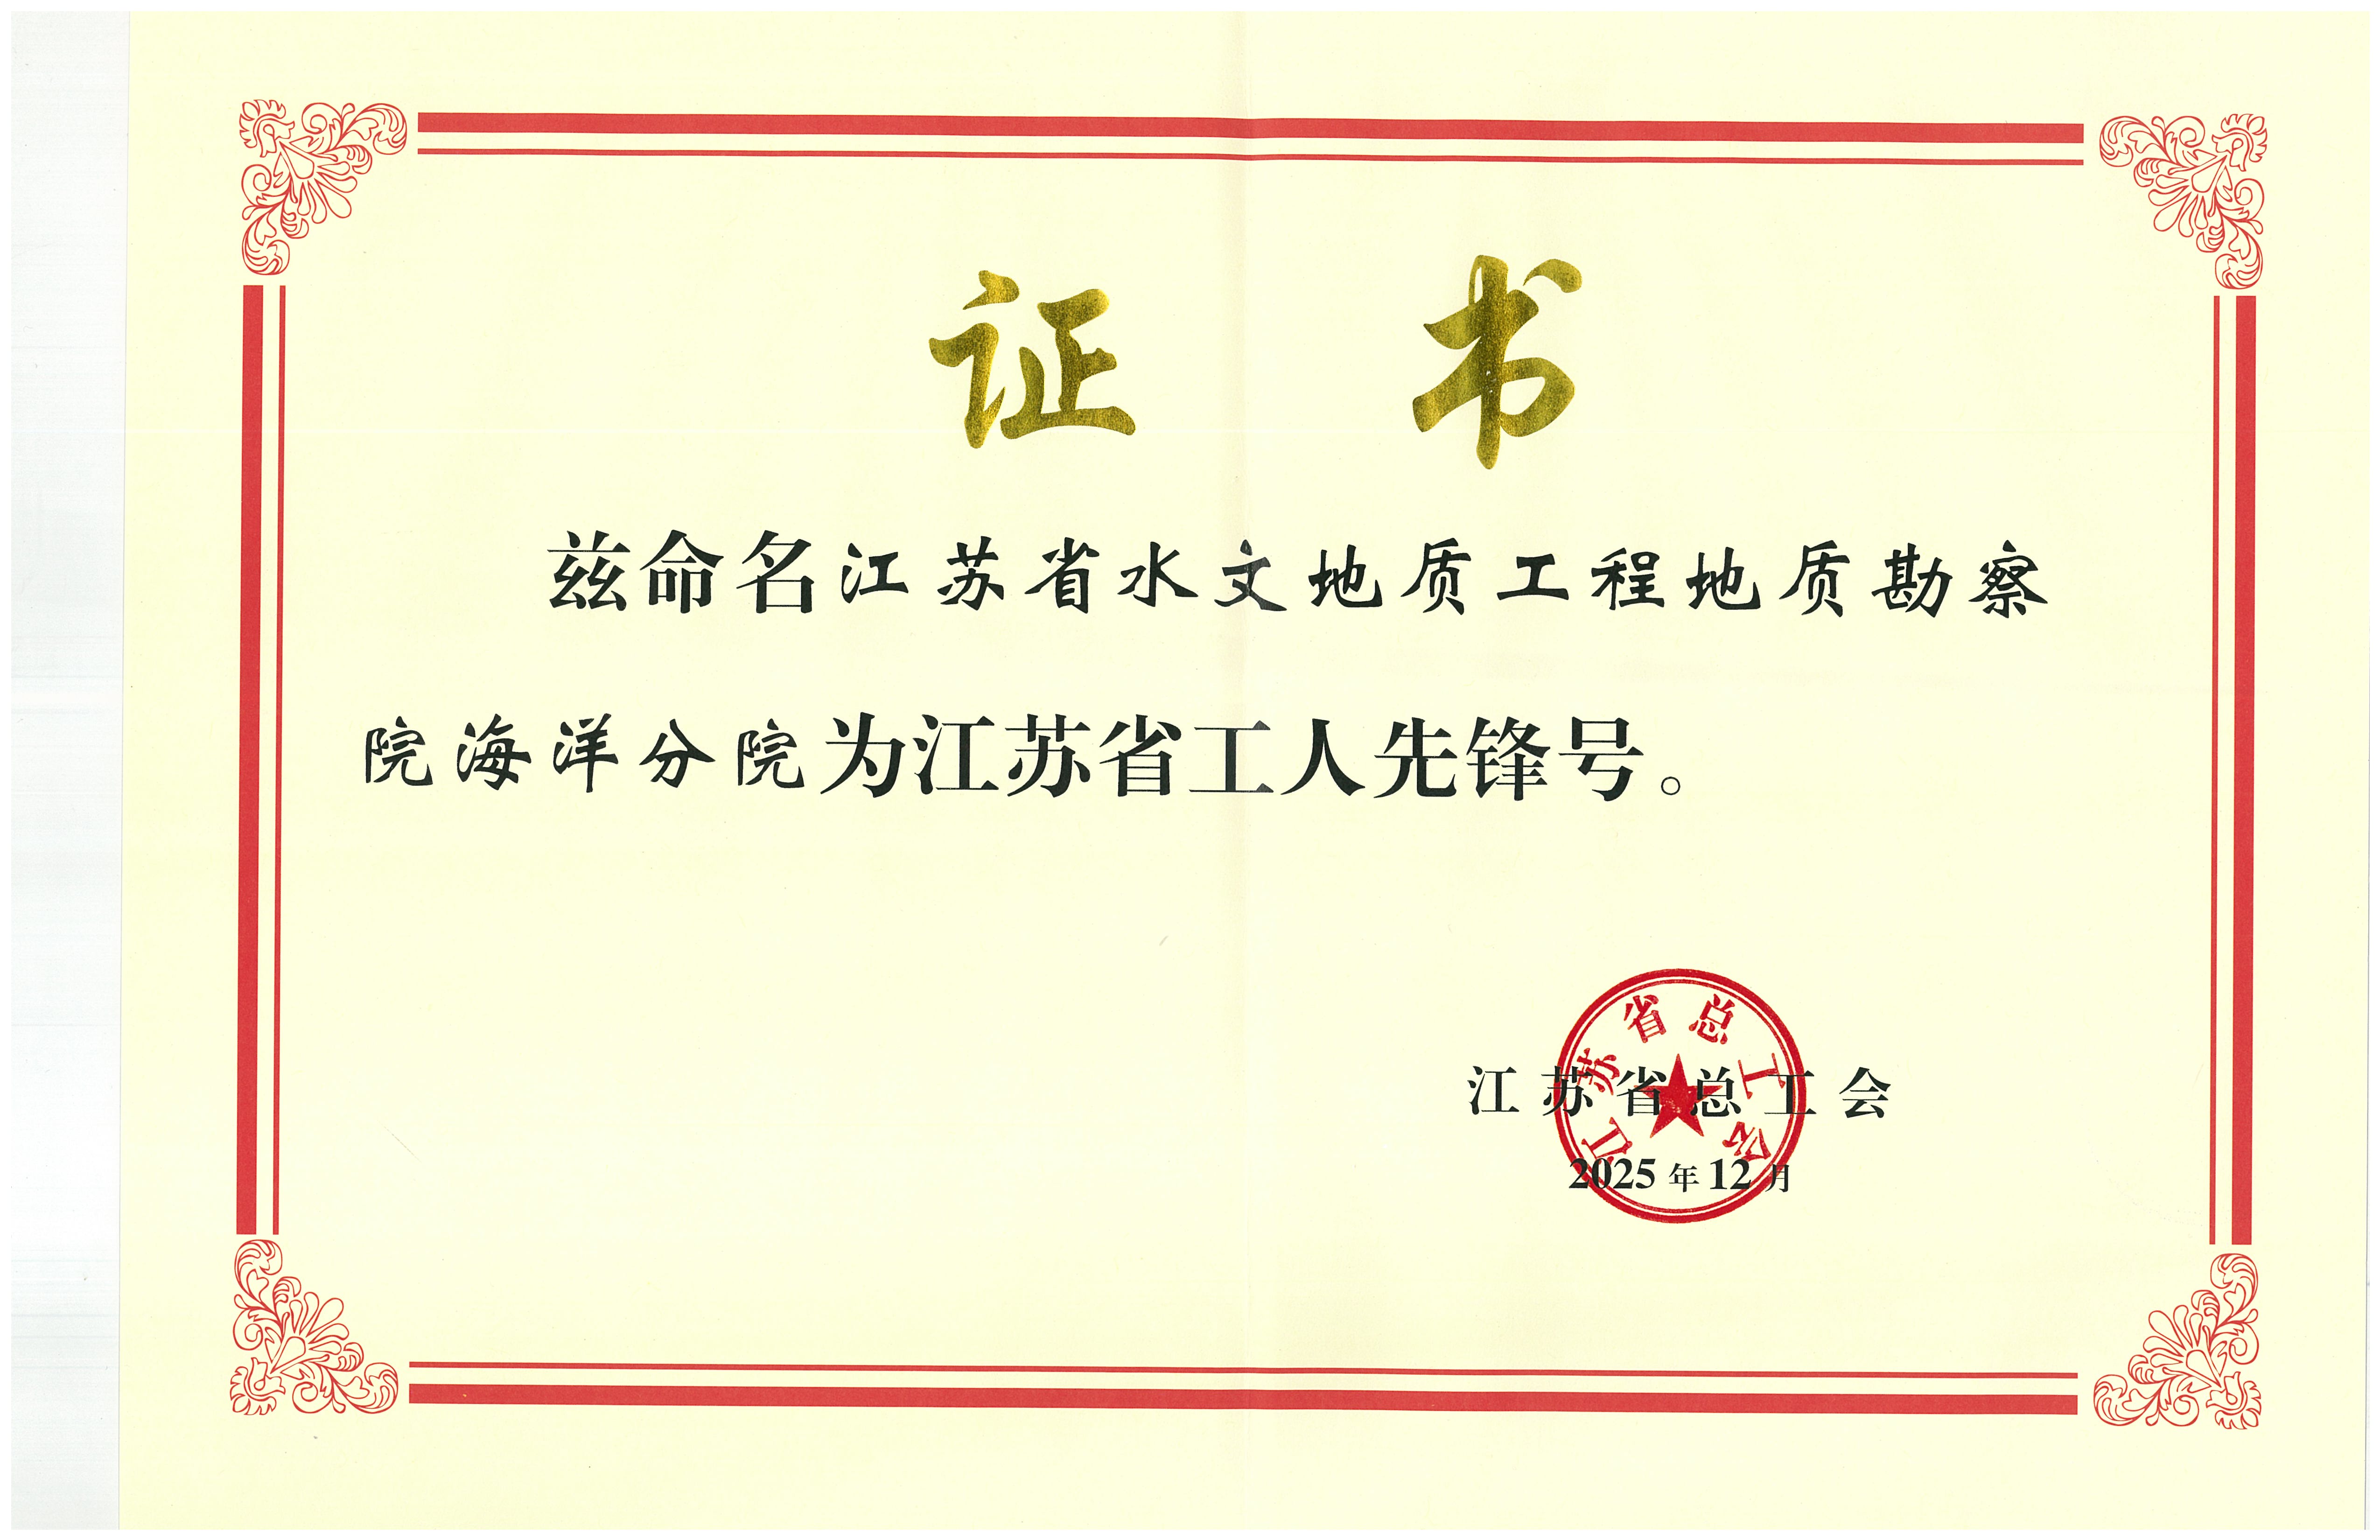 证 书
兹命名江苏省水文地质工程地质勘察
院海洋分院为江苏省工人先锋号。
江苏省总工会
江苏省总工会
2025年12月